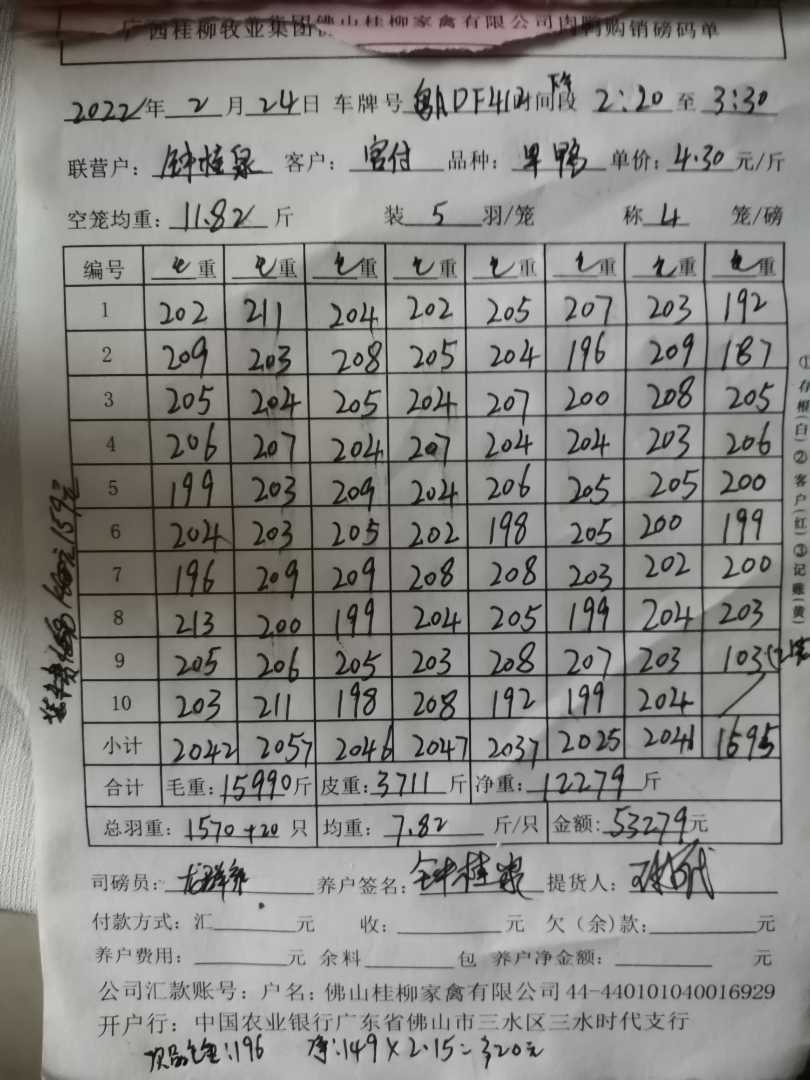 广西桂柳牧业集团佛山桂柳家禽有限公司肉鸭购销磅码单
2022年2月24日 车牌号 粤ADF412 时间段 下午 2:20 至 3:30
联营户: 钟桂泉 客户: 宫付 品种: 单鸭 单价: 4.30 元/斤
空笼均重: 11.82 斤 装 5 羽/笼 称 4 笼/磅
编号 毛重 毛重 毛重 毛重 毛重 毛重 毛重 毛重
1 202 211 204 202 205 207 203 192
2 209 203 208 205 204 196 209 187
3 205 204 205 204 207 200 208 205
4 206 207 204 207 204 204 203 206
5 199 203 209 204 206 205 205 200
6 204 203 205 202 198 205 200 199
7 196 209 209 208 208 203 202 200
8 213 200 199 204 205 199 204 203
9 205 206 205 203 208 207 203 103
10 203 211 198 208 192 199 204
小计 2042 2057 2046 2047 2037 2025 2041 1695
合计 毛重: 15990斤 皮重: 3711斤 净重: 12279斤
总羽重: 1570+20 只 均重: 7.82 斤/只 金额: 53279元
司磅员: 养户签名: 钟桂泉 提货人:
付款方式: 汇 元 收: 元 欠(余)款: 元
养户费用: 元 余料 包 养户净金额: 元
公司汇款账号: 户名: 佛山桂柳家禽有限公司 44-440101040016929
开户行: 中国农业银行广东省佛山市三水区三水时代支行
次品毛重:196 净:149×2.15=320元
①存根(白)②客户(红)③记账(黄)
159元